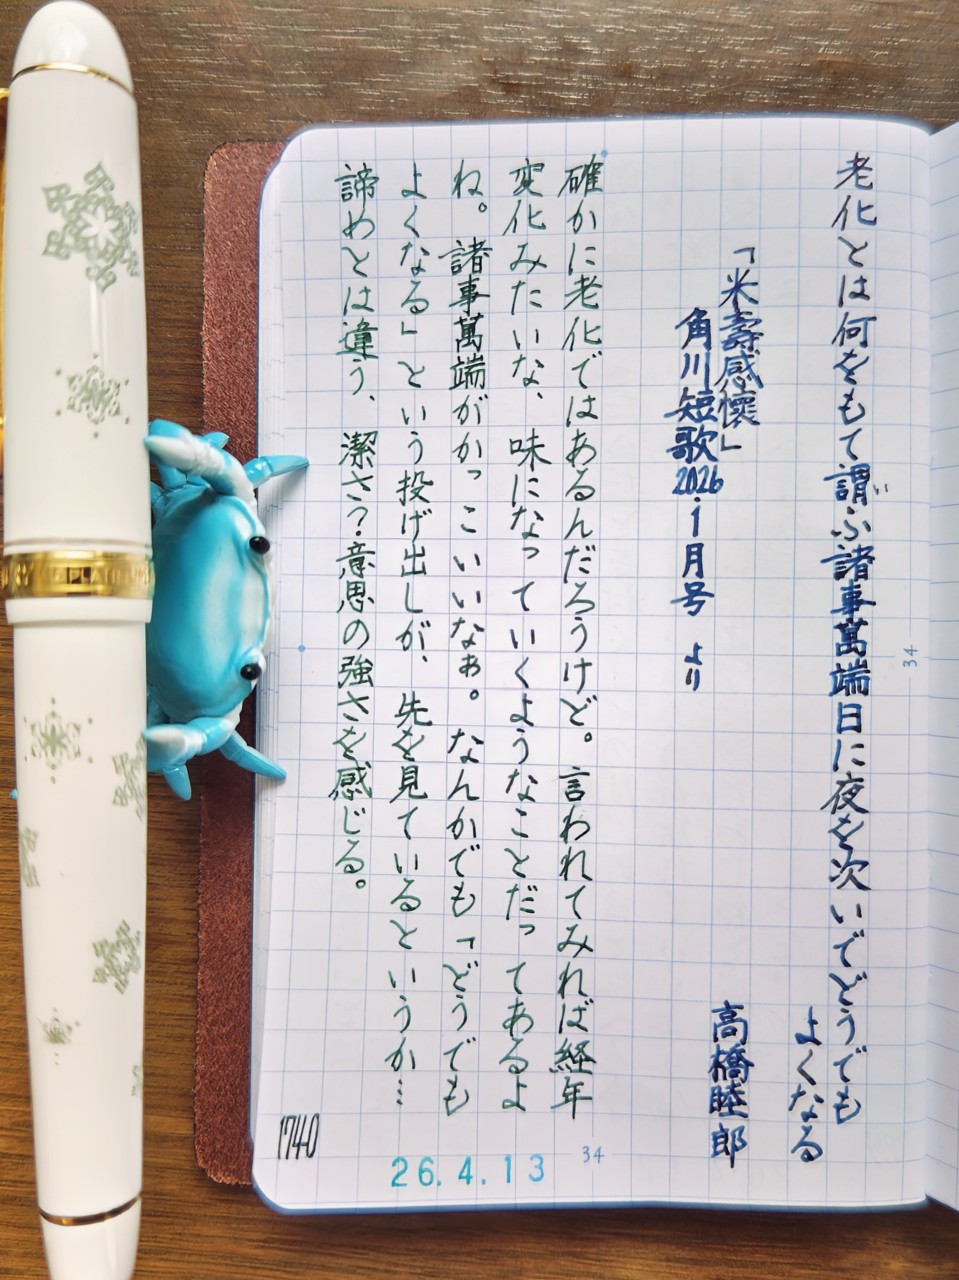 老化とは何をもて謂ふ諸事萬端日に夜を次いでどうでも
い
よくなる
「米壽感懷」
角川短歌2026.1月号 より
高橋睦郎
確かに老化ではあるんだろうけど。言われてみれば経年
変化みたいな、味になっていくようなことだってあるよ
ね。諸事萬端がかっこいいなぁ。なんかでも「どうでも
よくなる」という投げ出しが、先を見ているというか…
諦めとは違う、潔さ?意思の強さを感じる。
34
34
26.4.13
1740